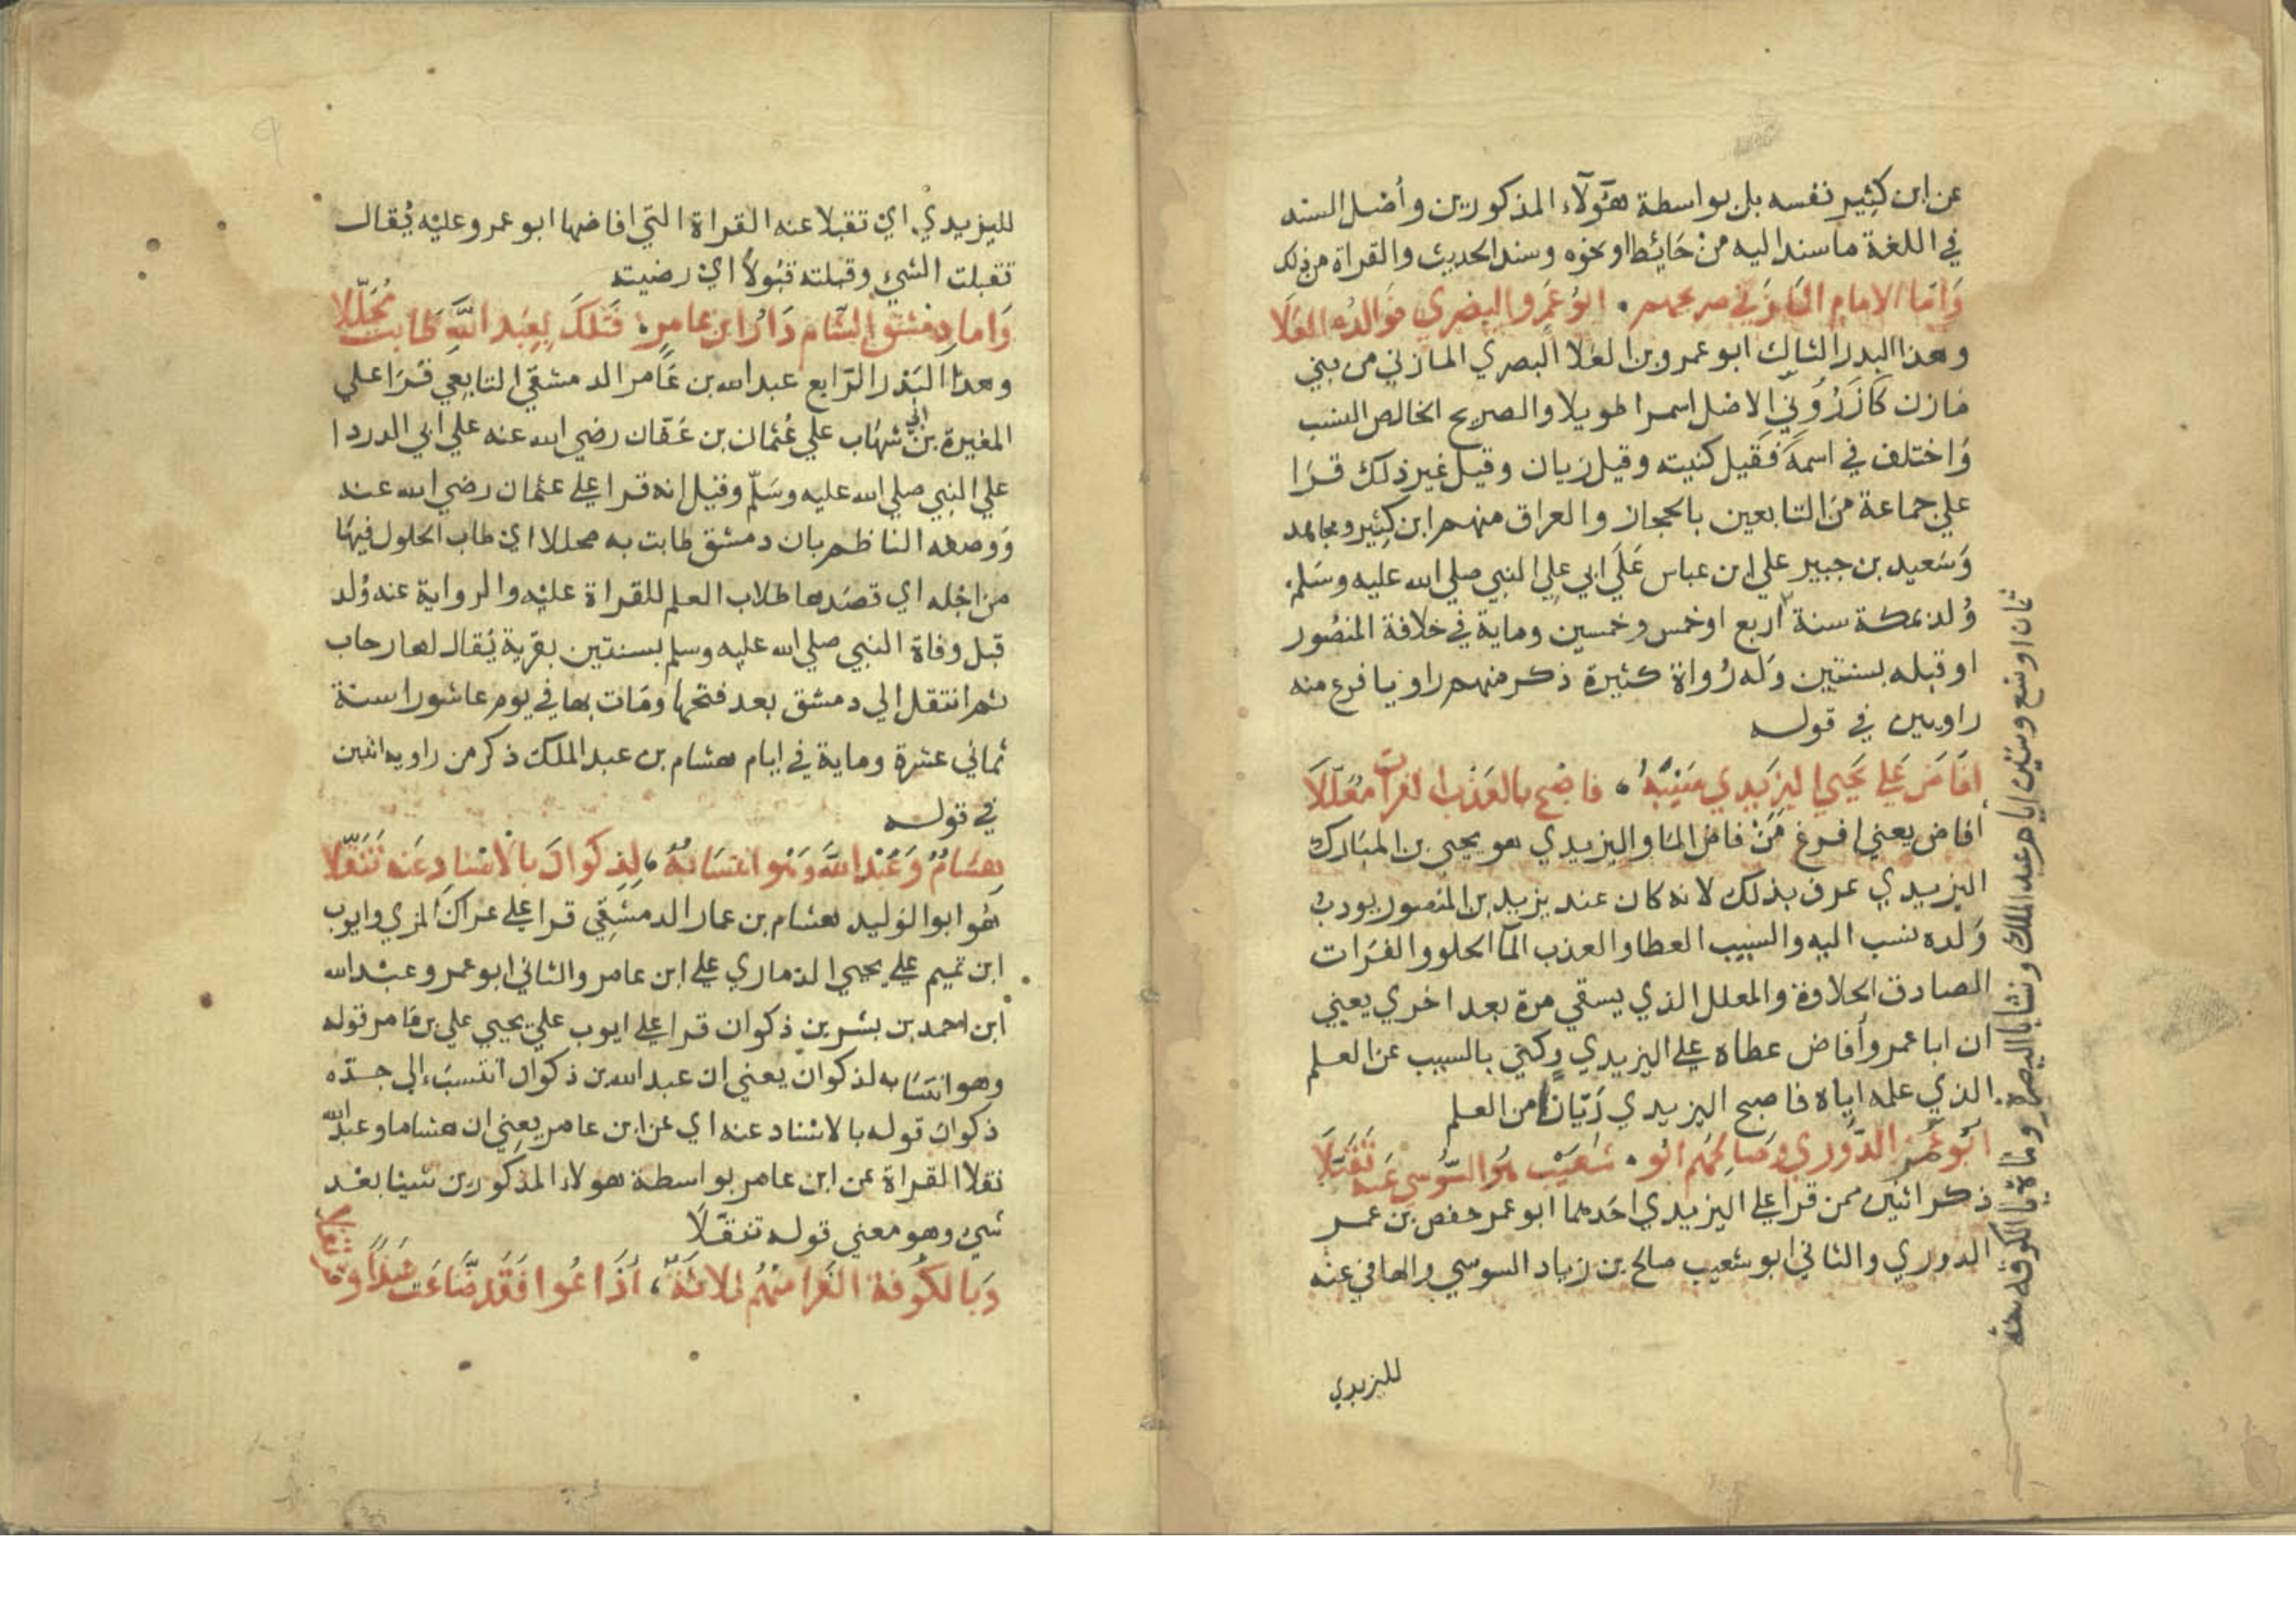 عن ابن كثير نفسه بل بواسطة هؤلاء المذكورين وأصل السند
في اللغة ما سند اليه من حائط او نحوه وسند الحديث والقراة من ذلك
وَاما الامام المازني صريحهم . ابو عمرو البصري فوالده العلا
وهذا البدر الثالث ابو عمرو بن العلا البصري المازني من بني
مازن كازَرُوني الاصل اسمر طويلا والصريح الخالص النسب
وَاختلف في اسمه فقيل كنيته وقيل زبان وقيل غير ذلك قرَا
علي جماعة من التابعين بالحجاز والعراق منهم ابن كثير ومجاهد
وَسَعيد بن جبير علي ابن عباس عَلَي ابي علي النبي صلي الله عليه وسَلم.
وُلد بمكة سنة
ثمان او تسع وستين ايام عبد الملك ونشا بالبصرة ومات بالكوفة سنة
اربع او خمس وخمسين وماية في خلافة المنصُور
او قبله بسنتين وَله رُواة كثيرة ذكر منهم راويا فرع منه
راويين في قوله
افَاضَ عَلي يَحيي اليزَيدي سَيْبَهُ ، فاصْبح بالعَذْب الفرات مُعَلّلَا
أفاض يعني افرغ مَنْ فاض الما واليزيدي هو يحيى بن المبَارك
اليزيدي عرف بذلك لانه كان عند يزيد بن المنصور يودبُ
وَلده نسب اليه والسيب العطا والعذب المآ الحلو والفرَات
الصادق الحلاوة والمعلل الذي يسقي مرة بعد اخري يعني
ان ابا عمرو أفاض عطاه علي اليزيدي وكني بالسيب عن العلم
الذي علمه اياه فاصبح اليزيدي رَيّانًا من العلم
ابُو عُمَر الدّوري وصَالحهُم ابُو . شعَيْب هُوَ السُّوسي عَنه تَقَبّلَا
ذكر اثنين ممن قرا علي اليزيدي احَدهما ابو عمر حفص بن عمر
الدوري والثاني ابو شعيب صالح بن زياد السوسي والها في عنه
لليزيدي
لليزيدي اي تقبلا عنه القراة التي افاضها ابو عمرو عليه يُقال
تقبلت الشيء وقبلته قبُولًا اي رضيته
وَاما دمشق الشّام دَارُ ابن عامرٍ ، فتلكَ بِعَبد اللَّهِ طابت مُحَلّلا
وهذا البَدْر الرّابع عبد الله بن عَامر الدمشقي التابعي قرَا علي
المغيرة بن ابي شهاب علي عُثمان بن عَفّان رضي الله عنه علي ابي الدردا
علي النبي صلي الله عليه وسَلّم وقيل انه قرا علي عثمان رضي الله عنه
وَوصفه الناظم بان دمشق طابت به محللا اي طاب الحلول فيهَا
من اجله اي قصَدها طلاب العلم للقراة عليه والرواية عنه وُلد
قبل وفاة النبي صلي الله عليه وسلم بسنتين بقرية يُقال لها رحاب
ثم انتقل الي دمشق بعد فتحها ومَات بها في يوم عاشورا سنة
ثماني عشرة وماية في ايام هشام بن عبد الملك ذكر من راويه اثنين
في قوله
هشامٌ وَعَبْدُ اللَّه وَهْو انتسَابُهُ ، لِذكوانَ بالْاسْناد عَنه تَنَقّلا
هُو ابو الوَليد هشام بن عمار الدمشقِي قرا علي عراك المزي وايوب
ابن تميم علي يحيي الذماري علي ابن عامر والثاني ابو عمرو عبْد الله
ابن احمد بن بشر بن ذكوان قرا علي ايوب علي يحيي علي بن عَامر قوله
وهو انتسَابه لذكوان يعني ان عبد الله بن ذكوان انتسبَ الي جدّه
ذكوان قوله بالاسْناد عنه اي عن ابن عامر يعني ان هشاما وعبد الله
نقلا القراة عن ابن عامر بواسطة هولاء المذكورين شيئا بعْد
شيء وهو معني قوله تنقّلَا
وَبالكُوفة الغَرا منهُم ثلاثةٌ ، أذَاعُوا فَقَد ضَاعَت شَذًا وقرنفلا